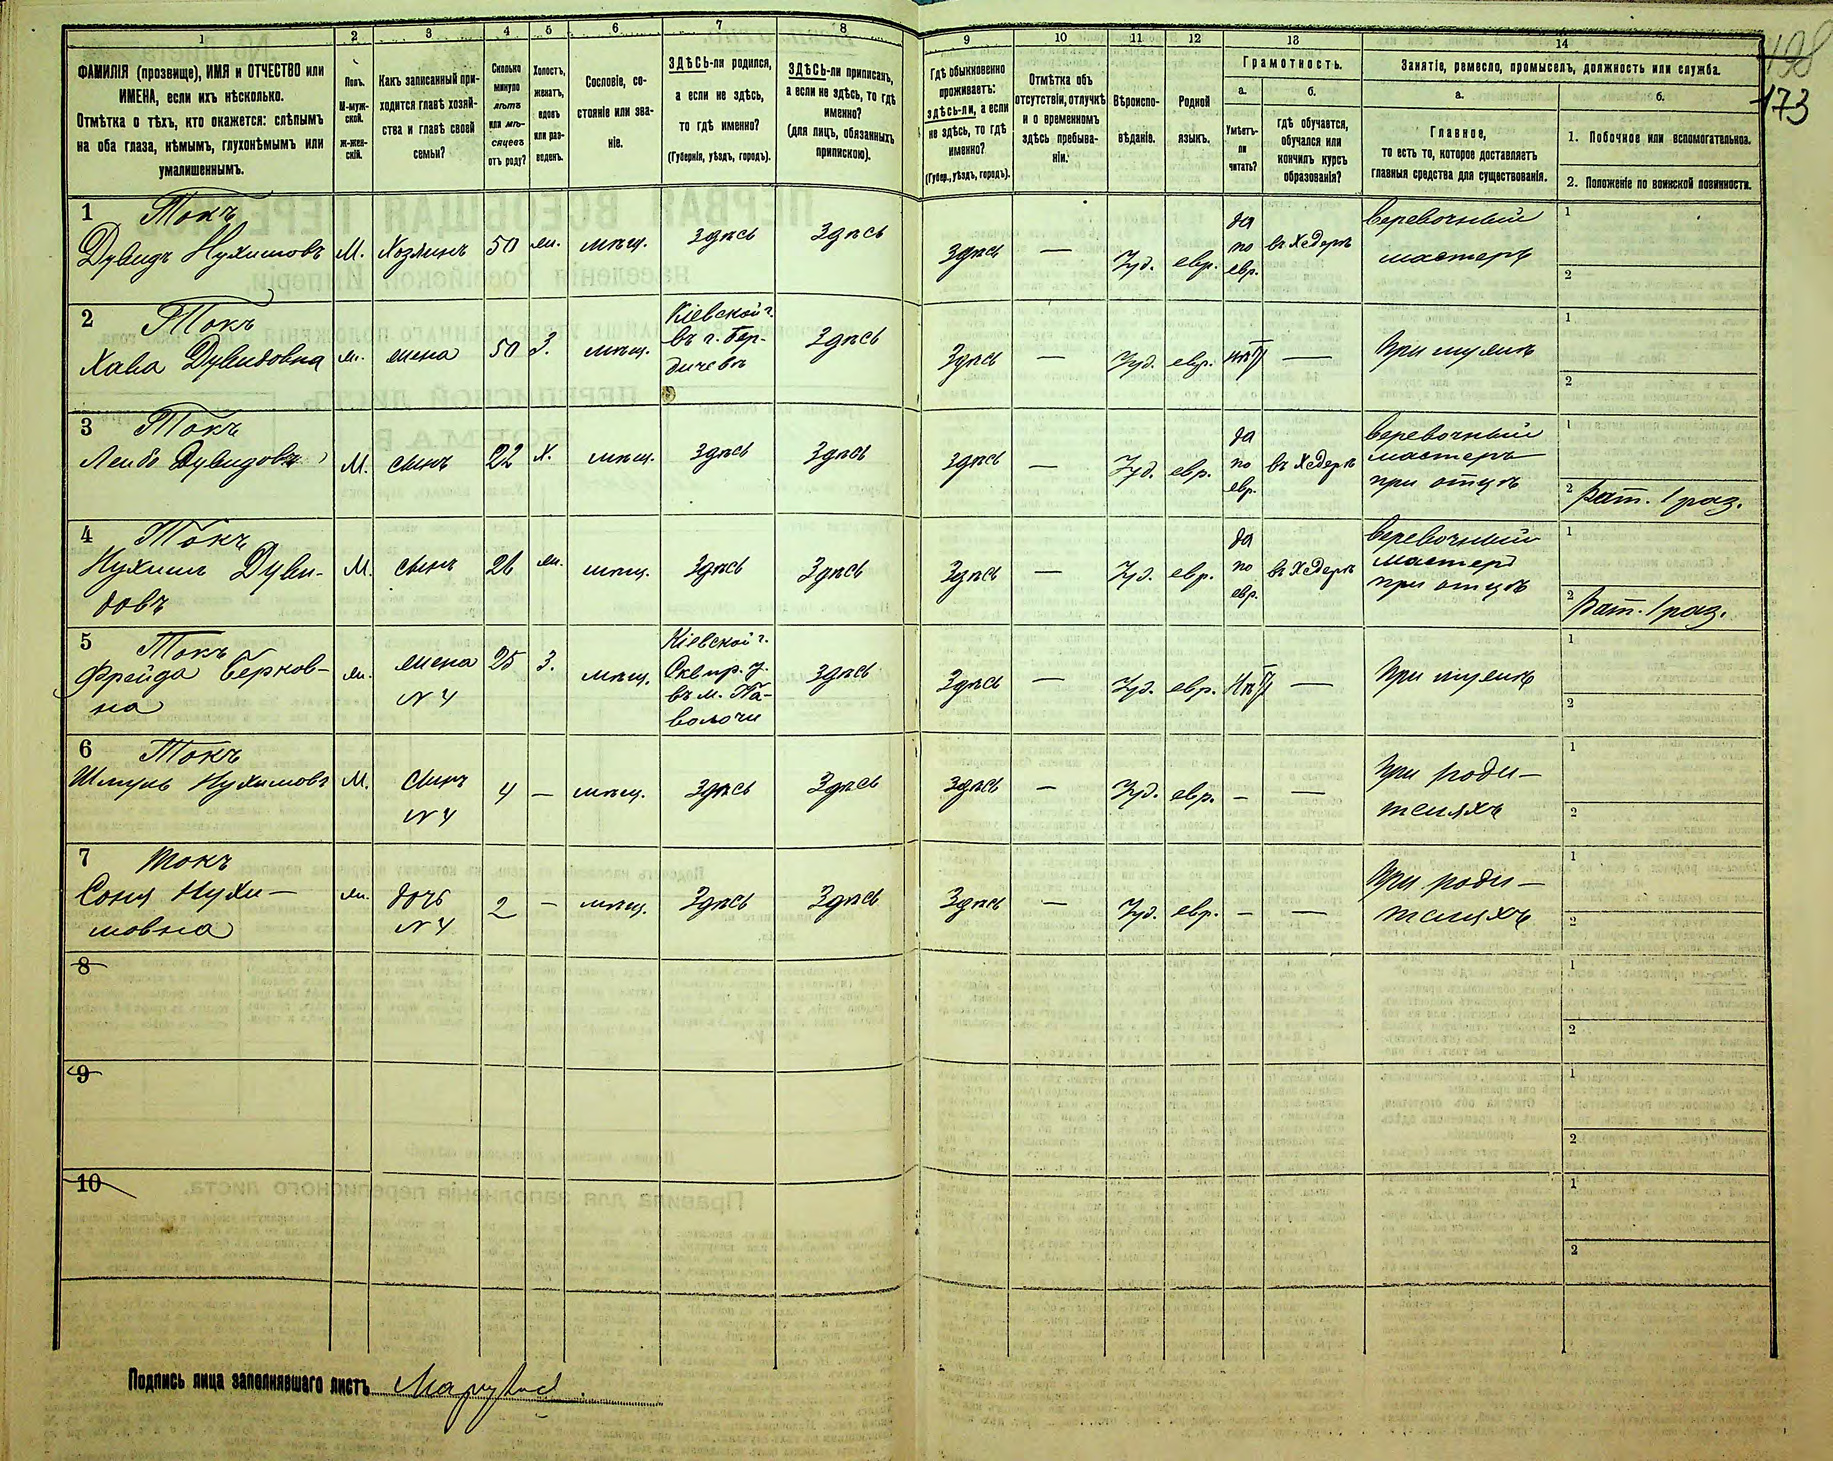 1 2 3 4 5 6 7 8 9 10 11 12 13 14
ФАМИЛІЯ (прозвище), ИМЯ и ОТЧЕСТВО или
ИМЕНА, если ихъ нѣсколько.
Отмѣтка о тѣхъ, кто окажется: слѣпымъ
на оба глаза, нѣмымъ, глухонѣмымъ или
умалишеннымъ.
Полъ.
М-муж-
ской.
Ж-жен-
скій.
Какъ записанный при-
ходится главѣ хозяй-
ства и главѣ своей
семьи?
Сколько
минуло
лѣтъ
или мѣ-
сяцевъ
отъ роду?
Холостъ,
женатъ,
вдовъ
или раз-
веденъ.
Сословіе, со-
стояніе или зва-
ніе.
ЗДѢСЬ-ли родился,
а если не здѣсь,
то гдѣ именно?
(Губернія, уѣздъ, городъ).
ЗДѢСЬ-ли приписанъ,
а если не здѣсь, то гдѣ
именно?
(для лицъ, обязанныхъ
припискою).
Гдѣ обыкновенно
проживаетъ:
здѣсь-ли, а если
не здѣсь, то гдѣ
именно?
(Губер., уѣздъ, городъ).
Отмѣтка объ
отсутствіи, отлучкѣ
и о временномъ
здѣсь пребыва-
ніи.
Вѣроиспо-
вѣданіе.
Родной
языкъ.
Грамотность.
а.
Умѣетъ-
ли
читать?
б.
гдѣ обучается,
обучался или
кончилъ курсъ
образованія?
Занятіе, ремесло, промыселъ, должность или служба.
а.
Главное,
то есть то, которое доставляетъ
главныя средства для существованія.
б.
1. Побочное или вспомогательное.
2. Положеніе по воинской повинности.
198
173
1 Токъ
Дувидъ Нухимовъ М. Хозяинъ 50 ж. мѣщ. Здѣсь Здѣсь Здѣсь — Іуд. евр. да по евр. въ Хедерѣ веревочный мастеръ
1
2
2 Токъ
Хава Дувидовна ж. жена 50 З. мѣщ. Кіевской г. въ г. Бер-дичевѣ Здѣсь Здѣсь — Іуд. евр. нѣтъ — При мужѣ
1
2
3 Токъ
Лейбъ Дувидовъ М. сынъ 22 Х. мѣщ. Здѣсь Здѣсь Здѣсь — Іуд. евр. да по евр. въ Хедерѣ веревочный мастеръ при отцѣ
1
2 Рат. 1 раз.
4 Токъ
Нухимъ Дуви-
довъ М. сынъ 26 ж. мѣщ. Здѣсь Здѣсь Здѣсь — Іуд. евр. да по евр. въ Хедерѣ веревочный мастеръ при отцѣ
1
2 Рат. 1 раз.
5 Токъ
Фрейда Берков-
на ж. жена №4 25 З. мѣщ. Кіевской г. Сквир. у. въ м. Па-волочи Здѣсь Здѣсь — Іуд. евр. Нѣтъ — При мужѣ
1
2
6 Токъ
Шмуль Нухимовъ М. Сынъ №4 4 — мѣщ. Здѣсь Здѣсь Здѣсь — Іуд. евр. — — При роди-теляхъ
1
2
7 Токъ
Соня Нухи-
мовна ж. дочь №4 2 — мѣщ. Здѣсь Здѣсь Здѣсь — Іуд. евр. — — При роди-теляхъ
1
2
8
1
2
9
1
2
10
1
2
Подпись лица заполнявшаго листъ